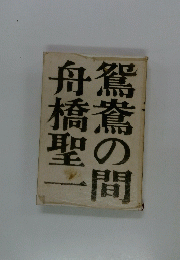 鴛鴦の間
舟橋聖一